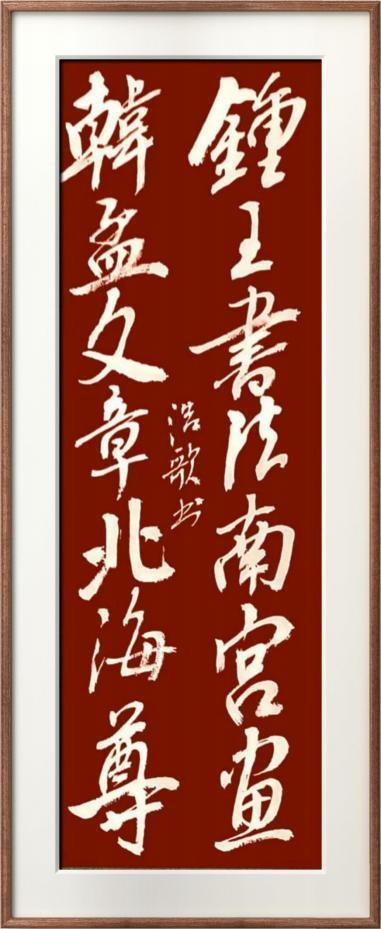 鍾王書法南宮畫
韓孟文章北海尊
浩歌书